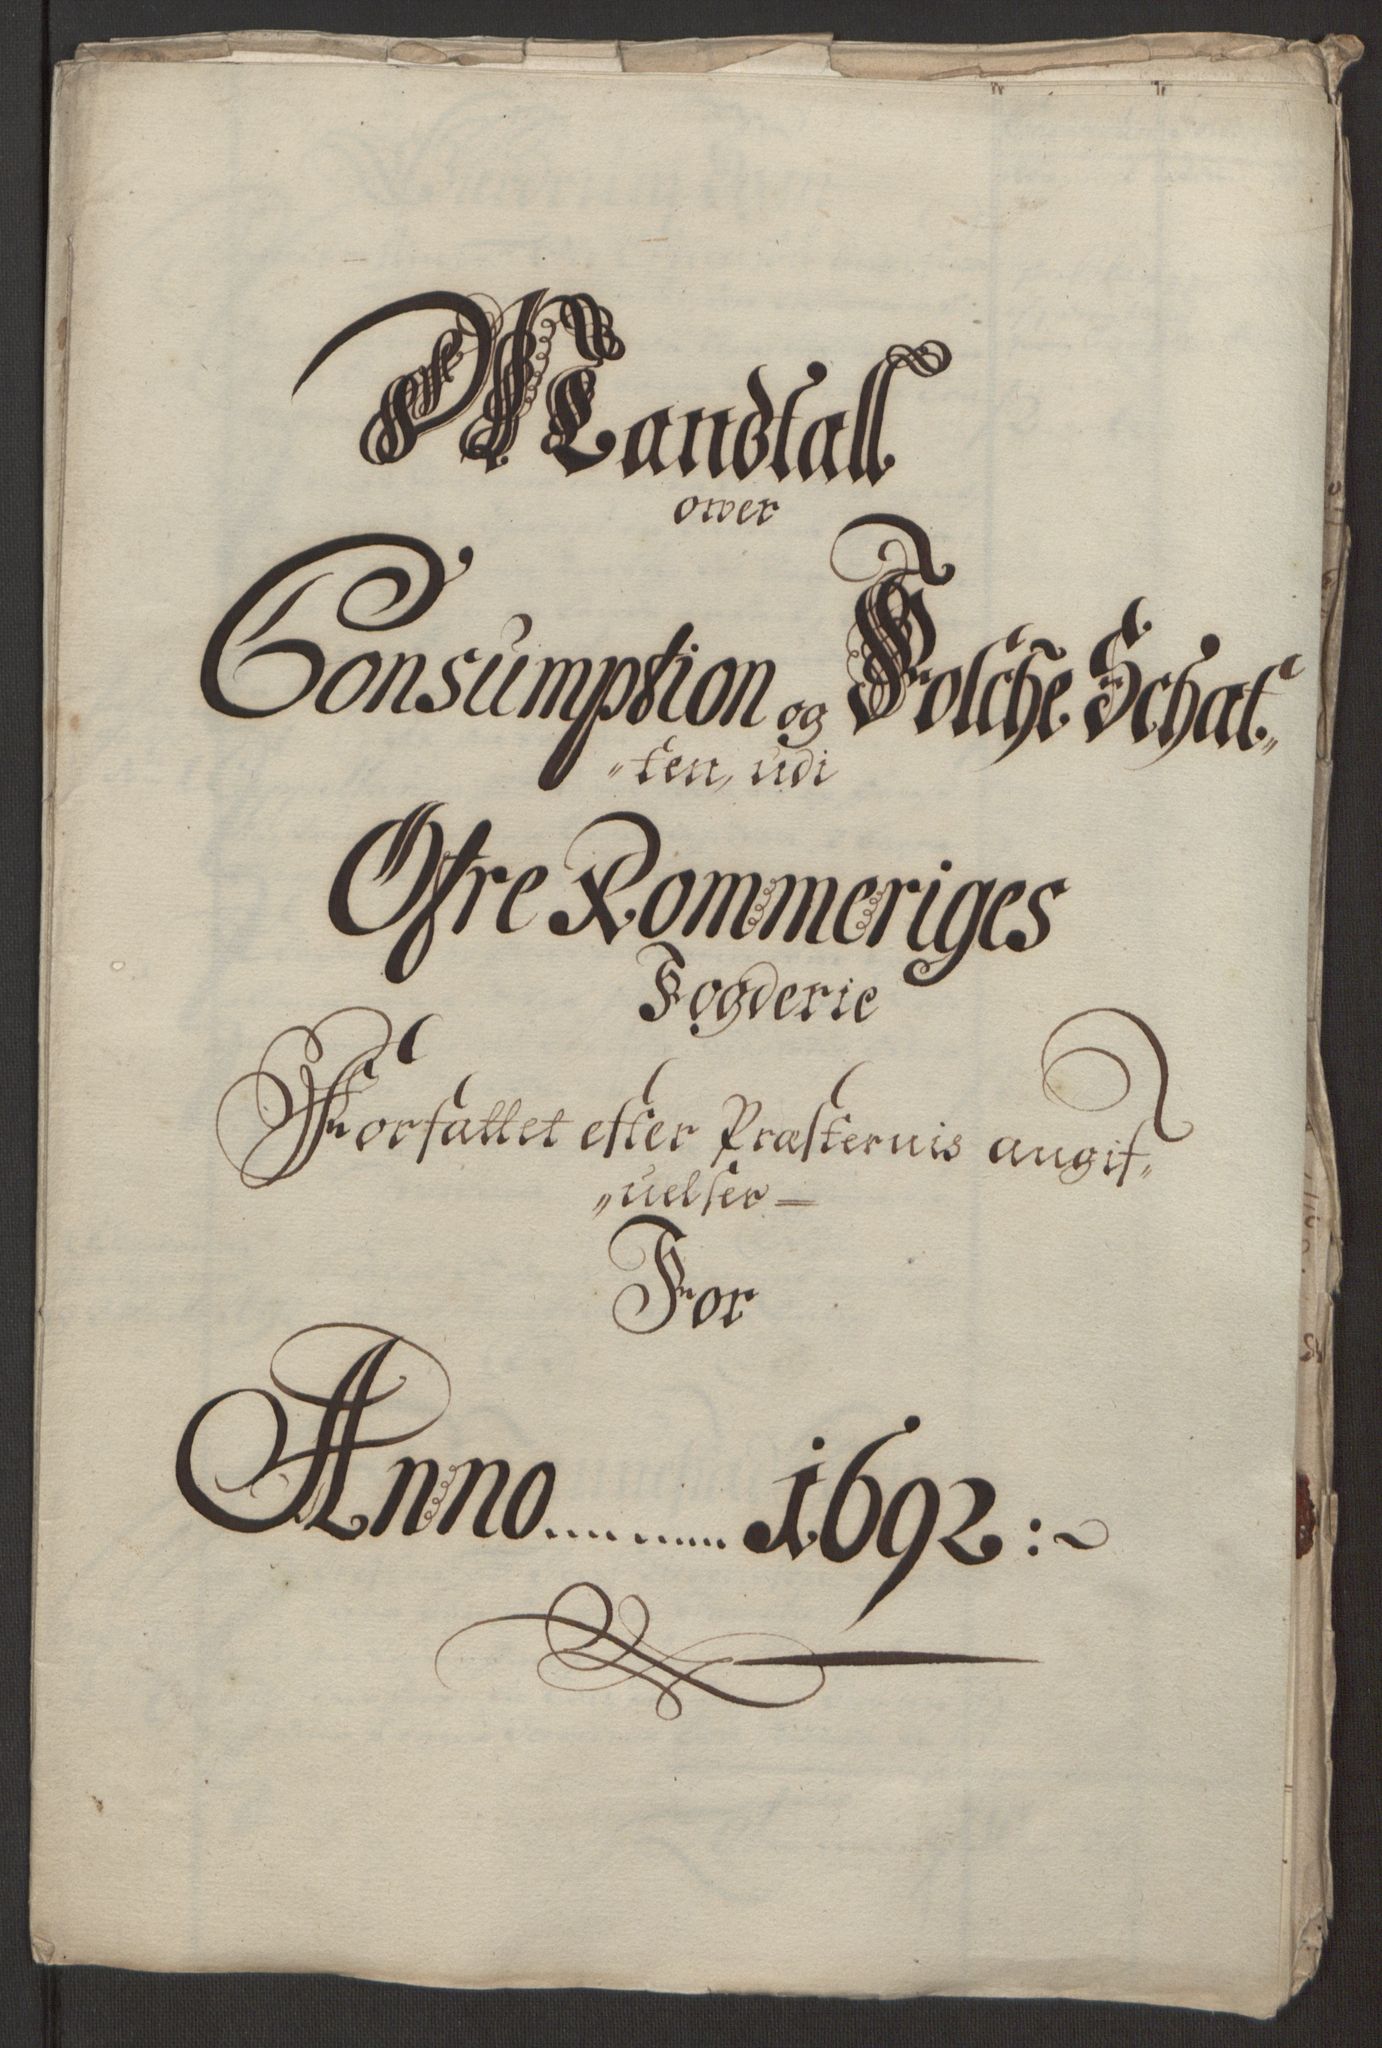 Mandtall
ower
Consumption og Folche Schat„
„ten, udi
Øfre Rommeriges
Fogderie
Forfattet efter Præsternis angif„
„uelser —
For
Anno........1692:~